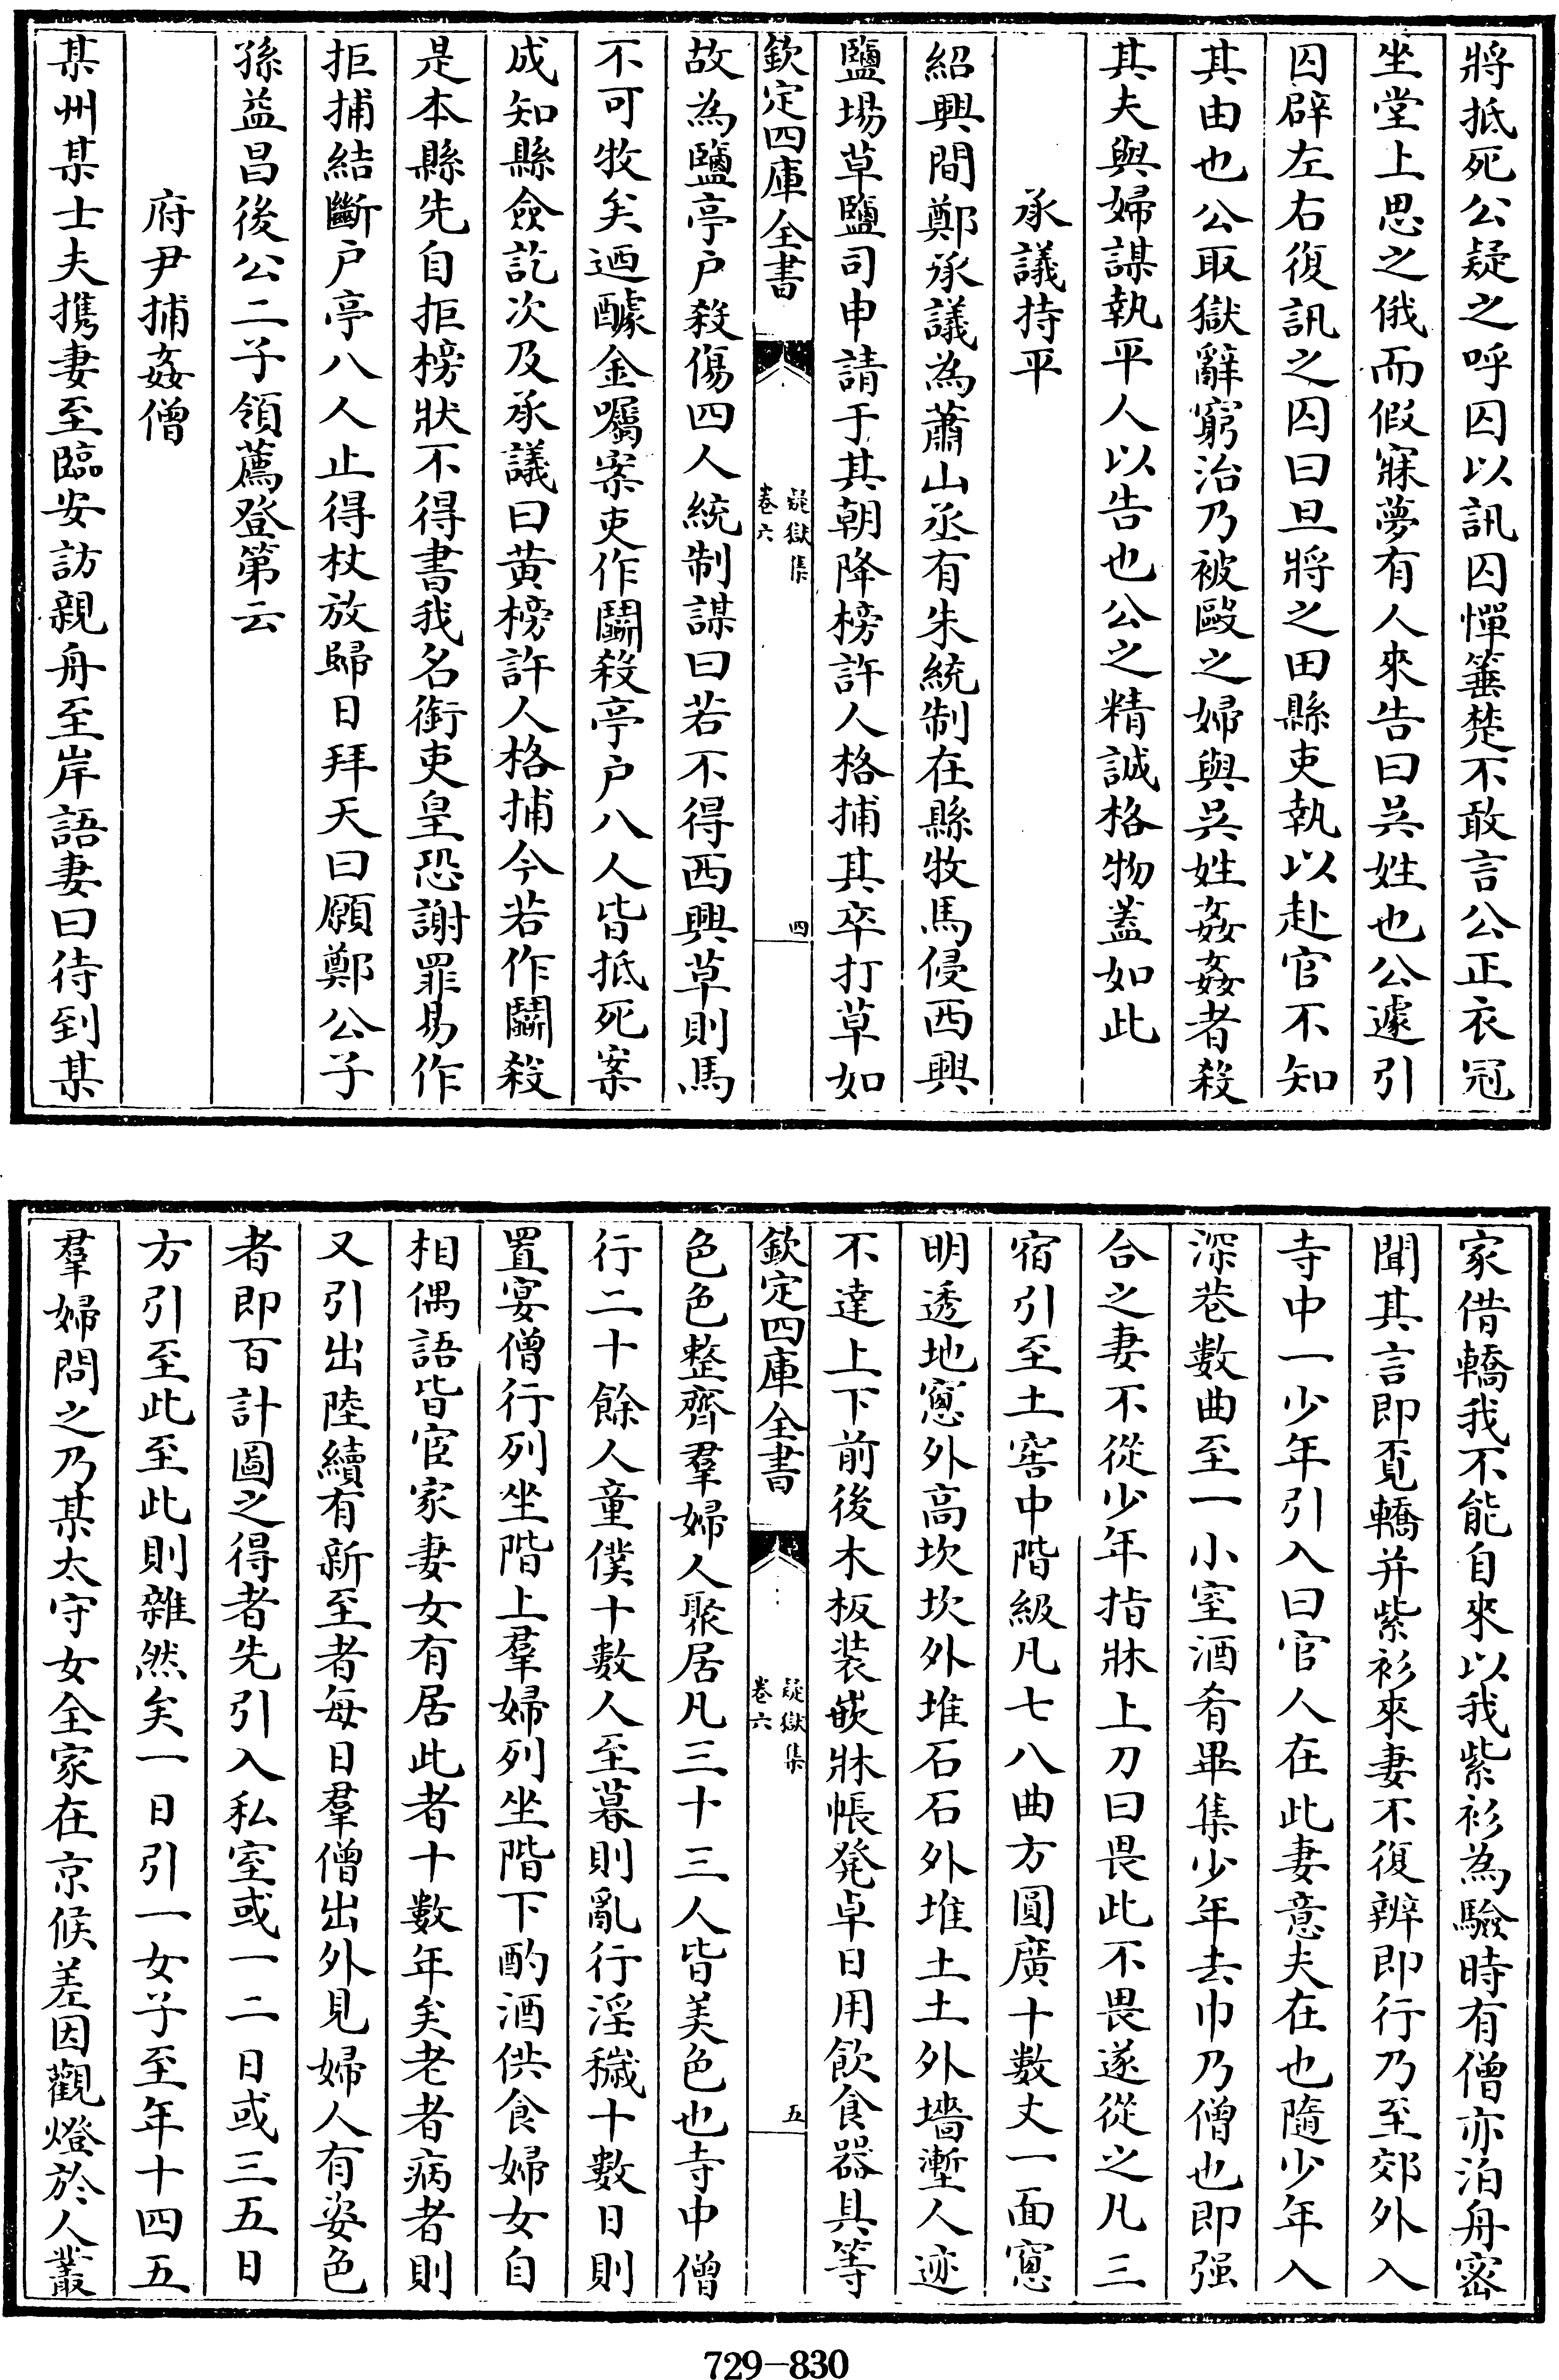 將抵死公疑之呼囚以訊囚憚箠楚不敢言公正衣冠
坐堂上思之俄而假寐夢有人來告曰吳姓也公遽引
囚辟左右復訊之囚曰旦將之田縣吏執以赴官不知
其由也公取獄辭窮治乃被毆之婦與吳姓姦姦者殺
其夫與婦謀執平人以告也公之精誠格物蓋如此
承議持平
紹興間鄭承議為蕭山丞有朱統制在縣牧馬侵西興
鹽場草鹽司申請于其朝降榜許人格捕其卒打草如
欽定四庫全書
疑獄集
卷六
四
故為鹽亭户殺傷四人統制謀曰若不得西興草則馬
不可牧矣迺醵金囑案吏作鬬殺亭户八人皆抵死案
成知縣僉訖次及承議曰黄榜許人格捕今若作鬬殺
是本縣先自拒榜狀不得書我名銜吏皇恐謝罪易作
拒捕結斷户亭八人止得杖放歸日拜天曰願鄭公子
孫益昌後公二子領薦登第云
府尹捕姦僧
某州某士夫携妻至臨安訪親舟至岸語妻曰待到某
家借轎我不能自來以我紫衫為驗時有僧亦泊舟密
聞其言即覔轎并紫衫來妻不復辨即行乃至郊外入
寺中一少年引入曰官人在此妻意夫在也隨少年入
深巷數曲至一小室酒肴畢集少年去巾乃僧也即强
合之妻不從少年指牀上刀曰畏此不畏遂從之凡三
宿引至土窖中階級凡七八曲方圓廣十數丈一面窻
明透地窻外高坎坎外堆石石外堆土土外墻壍人迹
不達上下前後木板装嵌牀帳凳卓日用飲食器具等
欽定四庫全書
疑獄集
卷六
五
色色整齊羣婦人聚居凡三十三人皆美色也寺中僧
行二十餘人童僕十數人至暮則亂行淫穢十數日則
置宴僧行列坐階上羣婦列坐階下酌酒供食婦女自
相偶語皆宦家妻女有居此者十數年矣老者病者則
又引出陸續有新至者每日羣僧出外見婦人有姿色
者即百計圖之得者先引入私室或一二日或三五日
方引至此至此則雜然矣一日引一女子至年十四五
羣婦問之乃某太守女全家在京候差因觀燈於人叢
729-830